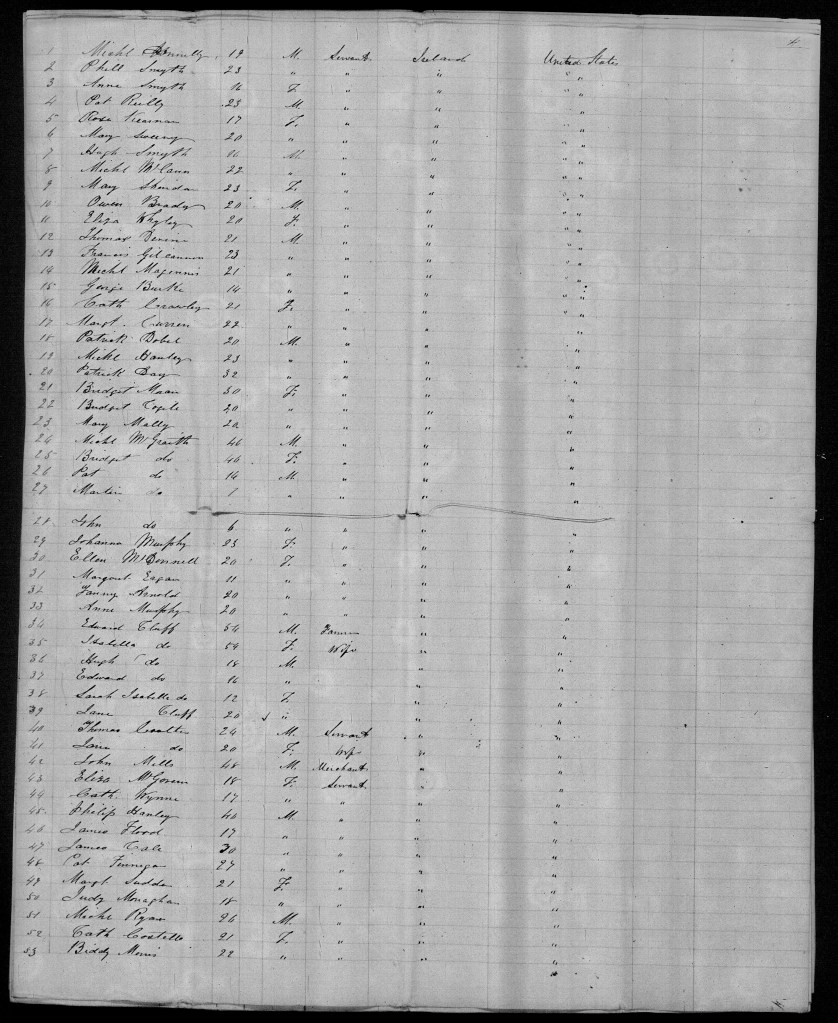 4
1 Michl Donnelly 19 M. Servant Ireland United States
2 Phill Smyth 23 " " " " "
3 Anne Smyth 16 F. " " " "
4 Pat Reilly 23 M. " " " "
5 Rosa Kiernan 17 F. " " " "
6 Mary Sweeny 20 " " " " "
7 Hugh Smyth 26 M. " " " "
8 Michl McCann 22 " " " " "
9 Mary Sheridan 23 F. " " " "
10 Owen Brady 20 M. " " " "
11 Eliza Whyley 20 F. " " " "
12 Thomas Devine 21 M. " " " "
13 Francis Gilcannon 23 " " " " "
14 Michl Maginnis 21 " " " " "
15 George Burke 14 " " " "
16 Cath Crawley 21 F. " " " "
17 Margt. Curren 22 " " " "
18 Patrick Bobel 20 M. " " "
19 Michl Hanley 23 " " " "
20 Patrick Day 32 " " " "
21 Bridget Maan 30 F. " " "
22 Bridget 20 " " " "
23 Mary Mally 20 " " " "
24 Michl McGraith 46 M. " " "
25 Bridget do 46 F. " " "
26 Pat do 14 M. " " "
27 Martin do 1 " " " "
28 John do 6 " " " "
29 Johanna Murphy 23 F. " " "
30 Ellen McDonnell 20 F. " " "
31 Margaret Egan 11 " " " "
32 Fanny Arnold 20 " " " "
33 Anne Murphy 20 " " " "
34 Edward Cluff 54 M. Farmer " "
35 Isabella do 54 F. Wife " "
36 Hugh do 18 M. " "
37 Edward do 16 " " "
38 Sarah Isabella do 12 F. " "
39 Jane Cluff 20 " " "
40 Thomas Coulter 24 M. Servant " "
41 Jane do 20 F. Wife " "
42 John Mills 48 M. Merchant " "
43 Eliza McGovern 18 F. Servant " "
44 Cath. Wynne 17 " " " "
45 Philip Hanley 40 M. " " "
46 James Flood 17 " " " "
47 James Cale 30 " " " "
48 Pat Finnegan 27 " " " "
49 Margt 21 F. " " "
50 Judy Monaghan 18 " " " "
51 Michl Ryan 26 M. " " "
52 Cath Costello 21 F. " " "
53 Biddy Morris 22 " " " "